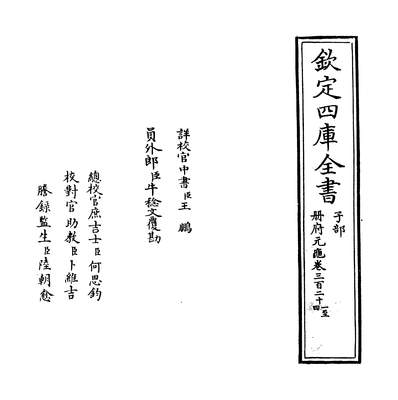 欽定四庫全書
子部
冊府元龜卷三百二十一至四
詳校官中書臣王鵬
員外郎臣牛稔文覆勘
總校官庶吉士臣何思鈞
校對官助教臣卜維吉
謄錄監生臣陸朝愈